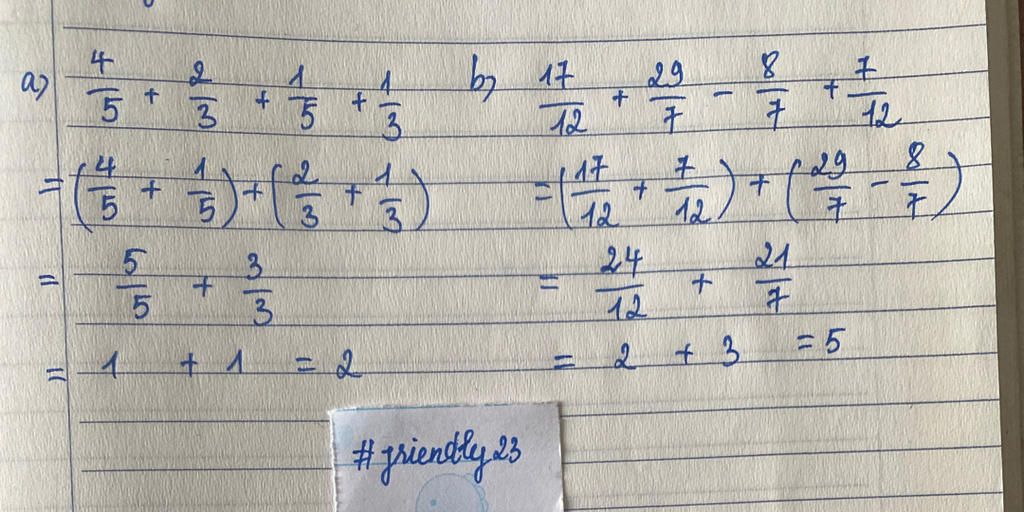 a) 4/5 + 2/3 + 1/5 + 1/3
= (4/5 + 1/5) + (2/3 + 1/3)
= 5/5 + 3/3
= 1 + 1 = 2
b) 17/12 + 29/7 - 8/7 + 7/12
= (17/12 + 7/12) + (29/7 - 8/7)
= 24/12 + 21/7
= 2 + 3 = 5
#friendly23